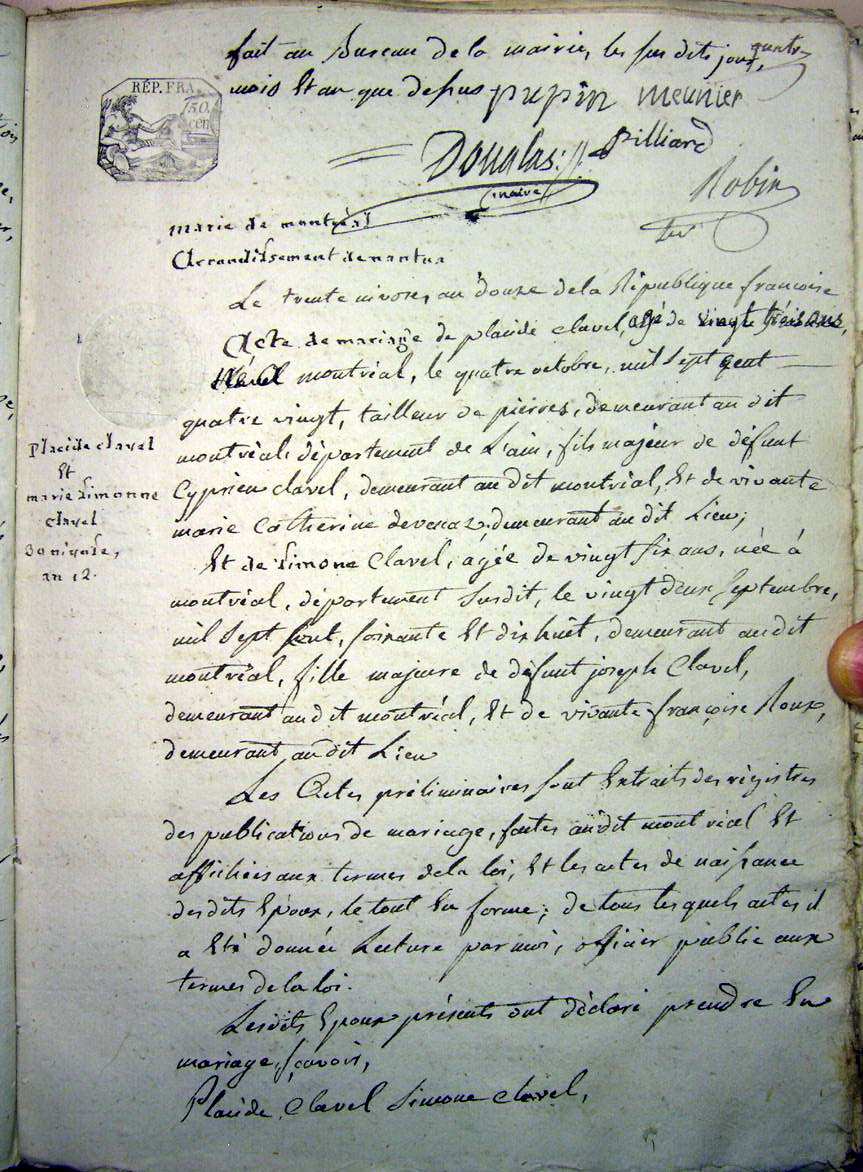 fait au Bureau de la mairie, les sus dits jour,
quatre
mois Et an que dessus pupin meunier
RÉP. FRA.
50.
cen
Douglas: Billiard
maire
Robin
marie de montréal
Arrondissement de nantua
Le trente nivose, an douze de la République francoise
Acte de mariage de placide clavel, agé de vingt trois ans,
né a montréal, le quatre octobre, mil sept cent
quatre vingt, tailleur de pierres, demeurant au dit
montréal, département de L'ain, fils majeur de défunt
Cyprien clavel, demeurant au dit montréal, Et de vivante
marie Catherine devenaz demeurant au dit Lieu;
Et de Simone Clavel, agée de vingt six ans, née à
montréal, département susdit, le vingt deux septembre,
mil sept cent, soixante Et dix huit, demeurant au dit
montréal, fille majeure de défunt joseph Clavel,
demeurant au dit montréal, Et de vivante françoise Roux,
demeurant au dit Lieu
Placide clavel
Et
marie Simonne
clavel
30 nivose,
an 12.
Les Actes préliminaires sont Extraits des régistres
des publications de mariage, faites au dit montréal Et
affichées aux termes de la loi, Et les actes de naissance
des dits Epoux, le tout En forme; de tous lesquels actes il
a Eté donnée Lecture par moi, officier public aux
termes de la loi.
Lesdits Epoux présents ont déclaré prendre En
mariage, sçavoir,
Placide Clavel Simone Clavel,